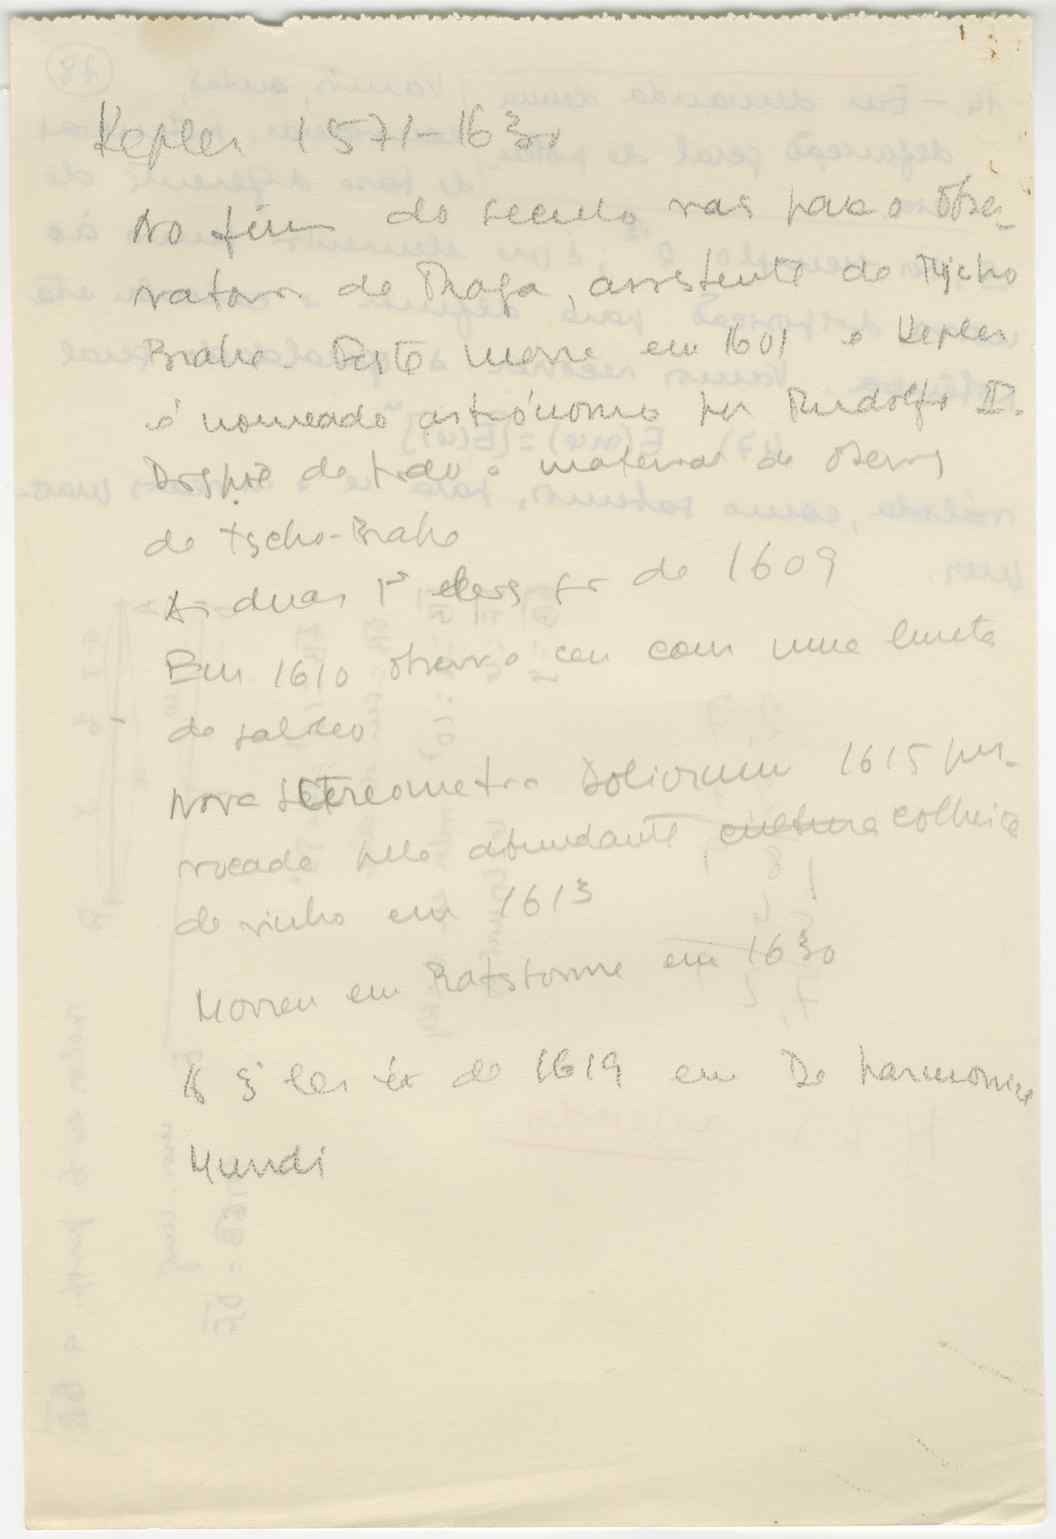 Kepler 1571-1630
No fim do seculo vai para o Obser-
vatorio de Praga, assistente de Tycho
Brahe. Este morre em 1601 e Kepler
é nomeado astrónomo por Rudolfo II.
Dispõe de todo o material de observ
de Tycho-Brahe
As duas 1ª leis são de 1609
Em 1610 observa o ceu com uma luneta
de Galileo
Nova Stereometria Doliorum 1615 pro-
vocada pela abundante cultura colheita
de vinho em 1613
Morreu em Ratsbonne em 1630
A 3ª lei é de 1619 em De harmonice
Mundi